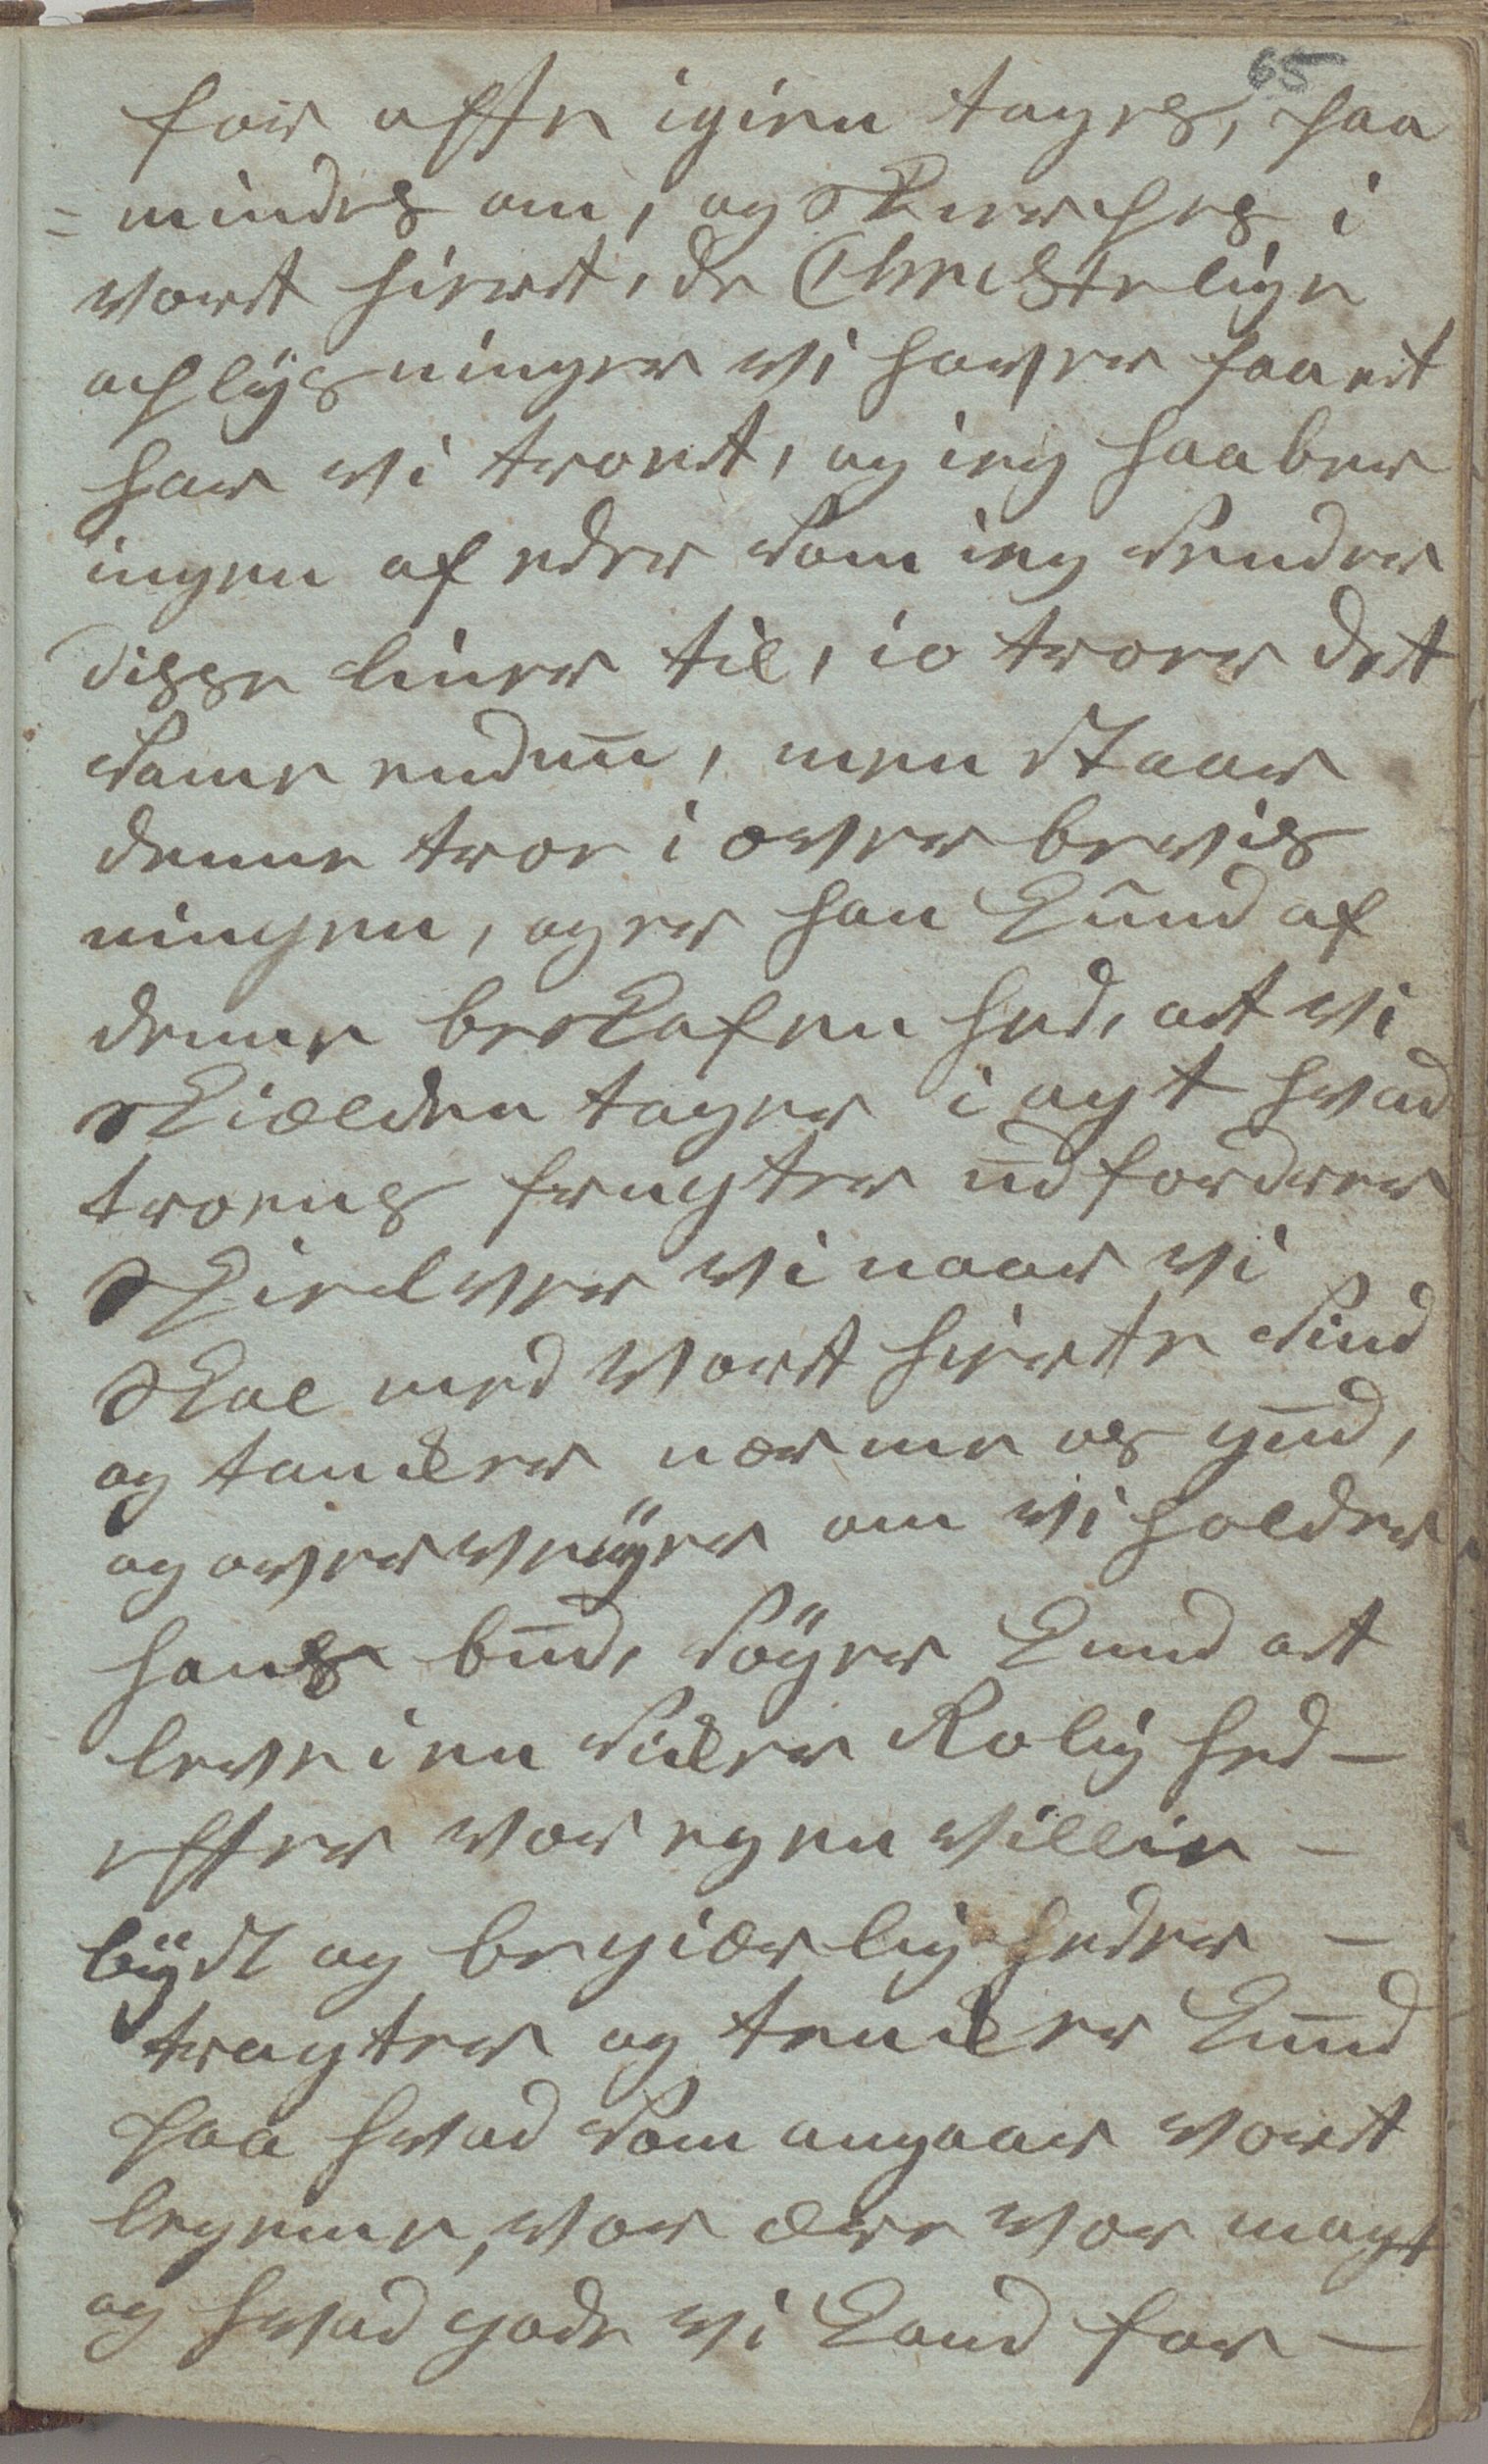 65
for ofte igien tages, paa
= mindes om, og Skierpes i
vort hiert, de Christelige
oplÿsninger vi haver faaet
har vi troet, og ieg haaber
ingen af eder Som ieg Sender
disse liner til, io troer det
Same endnu, men Staar
denne troe i overbevis
ningen, og er han kund af
denne beskafenhed, at vi
Skielden tager i agt hvad
troens frugter udfordrer
Skielver vi naar vi
Skal med Vort hierte Sind
og tanker nærme os gud,
og overveÿer om vi holder
hans bud, Søger kund at
leve i en Sicker Rolighed –
efter vor egen villie –
lÿst og begiærligheder –
tragter og tencker kund
paa hvad Som angaar vort
legeme, vor ære vor magt
og hvad gode vi kand for –